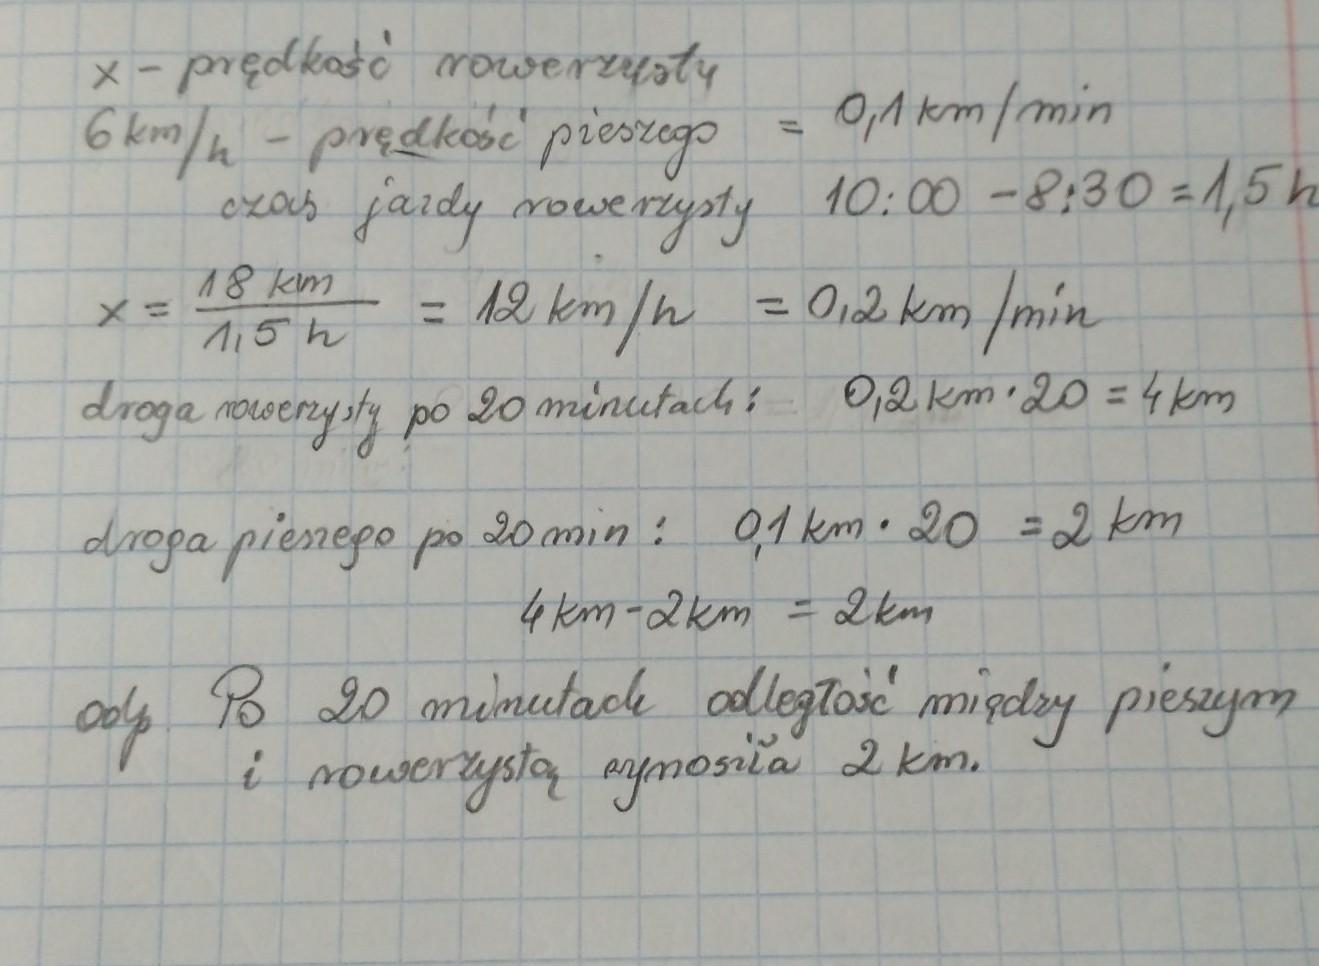 x – prędkość rowerzysty
6 km/h – prędkość pieszego = 0,1 km/min
czas jazdy rowerzysty 10:00 – 8:30 = 1,5 h
x = 18 km / 1,5 h = 12 km/h = 0,2 km/min
droga rowerzysty po 20 minutach: 0,2 km · 20 = 4 km
droga pieszego po 20 min: 0,1 km · 20 = 2 km
4 km – 2 km = 2 km
odp. Po 20 minutach odległość między pieszym
i rowerzystą wynosiła 2 km.